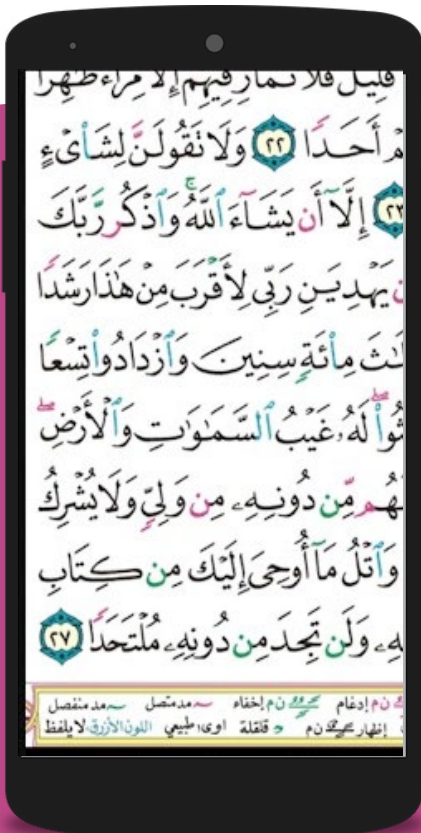 قَلِيلٌ فَلَا تُمَارِ فِيهِمْ إِلَّا مِرَآءً ظَٰهِرًا
م أَحَدًا ٢٢ وَلَا تَقُولَنَّ لِشَا۟ىْءٍ
٢٣ إِلَّآ أَن يَشَآءَ ٱللَّهُ ۚ وَٱذْكُر رَّبَّكَ
ن يَهْدِيَنِ رَبِّى لِأَقْرَبَ مِنْ هَٰذَا رَشَدًا
لَٰثَ مِا۟ئَةٍ سِنِينَ وَٱزْدَادُوا۟ تِسْعًا
ثُوا۟ ۖ لَهُۥ غَيْبُ ٱلسَّمَٰوَٰتِ وَٱلْأَرْضِ ۖ
لَهُم مِّن دُونِهِۦ مِن وَلِىٍّ وَلَا يُشْرِكُ
وَٱتْلُ مَآ أُوحِىَ إِلَيْكَ مِن كِتَابِ
هِۦ وَلَن تَجِدَ مِن دُونِهِۦ مُلْتَحَدًا ٢٧
ن م إدغام ن م إخفاء مد متصل مد منفصل
إظهار ن م قلقلة اوى طبيعي اللون الأزرق لا يلفظ